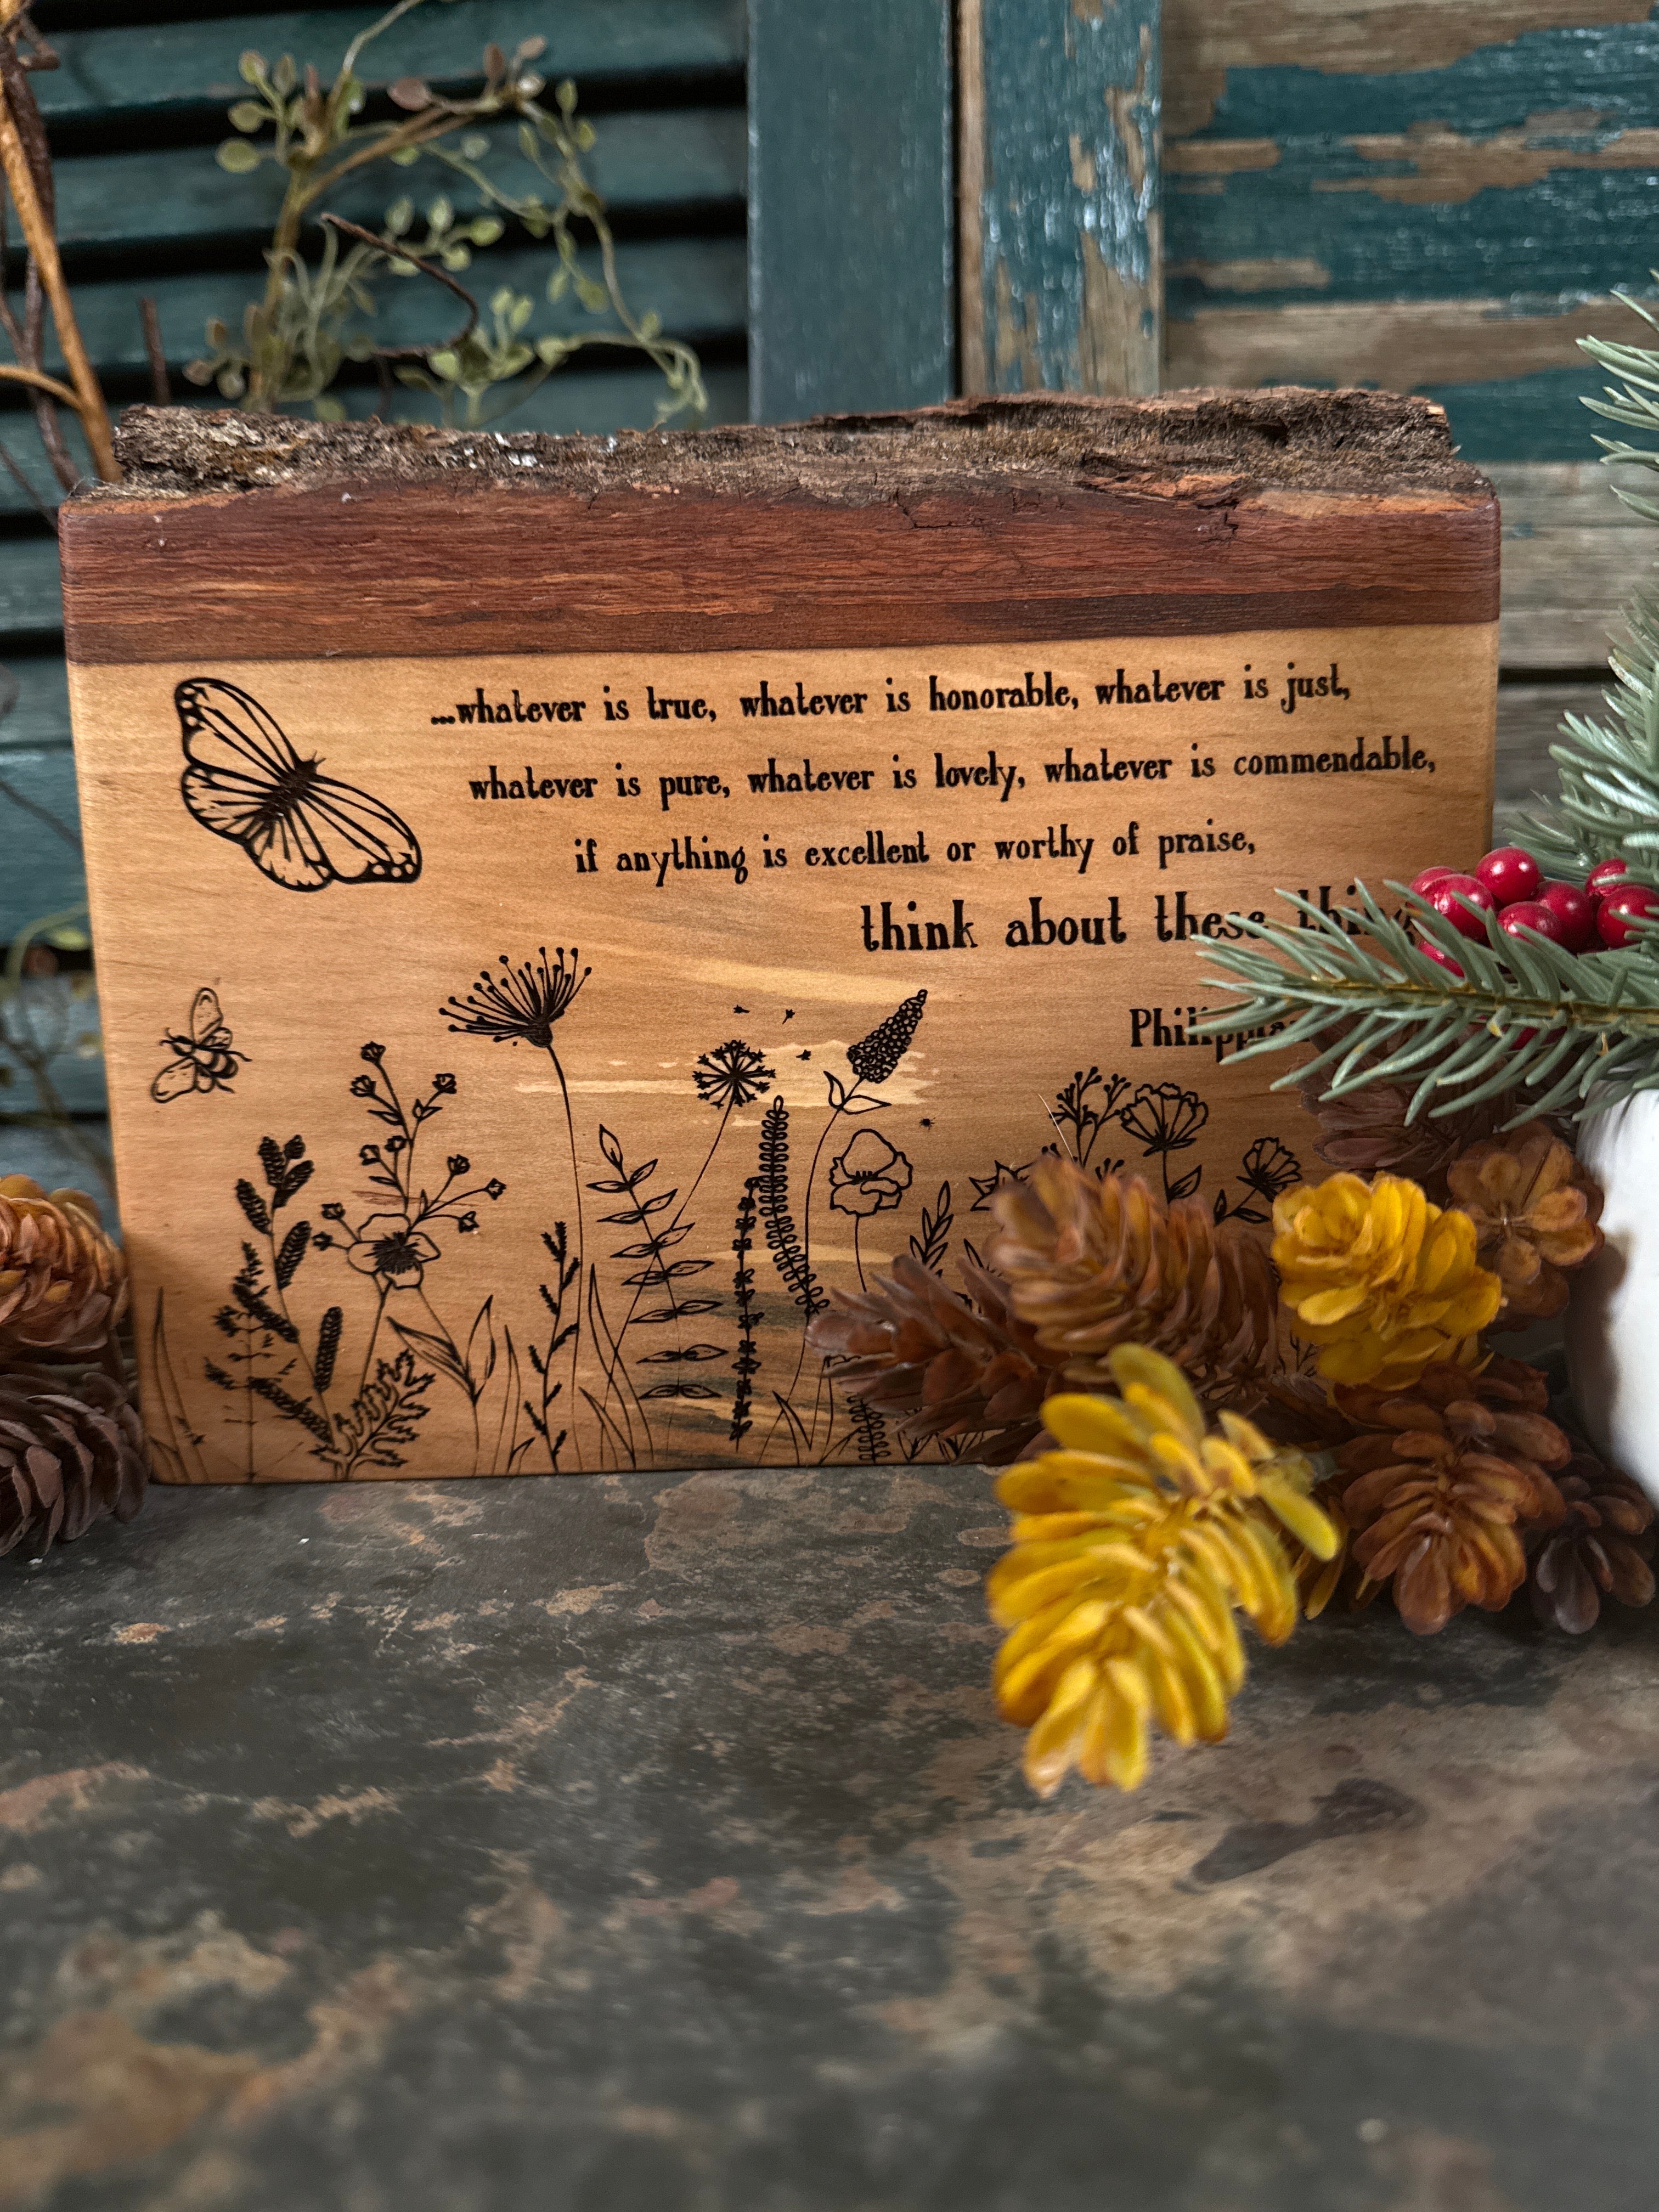 ...whatever is true, whatever is honorable, whatever is just,
whatever is pure, whatever is lovely, whatever is commendable,
if anything is excellent or worthy of praise,
think about these